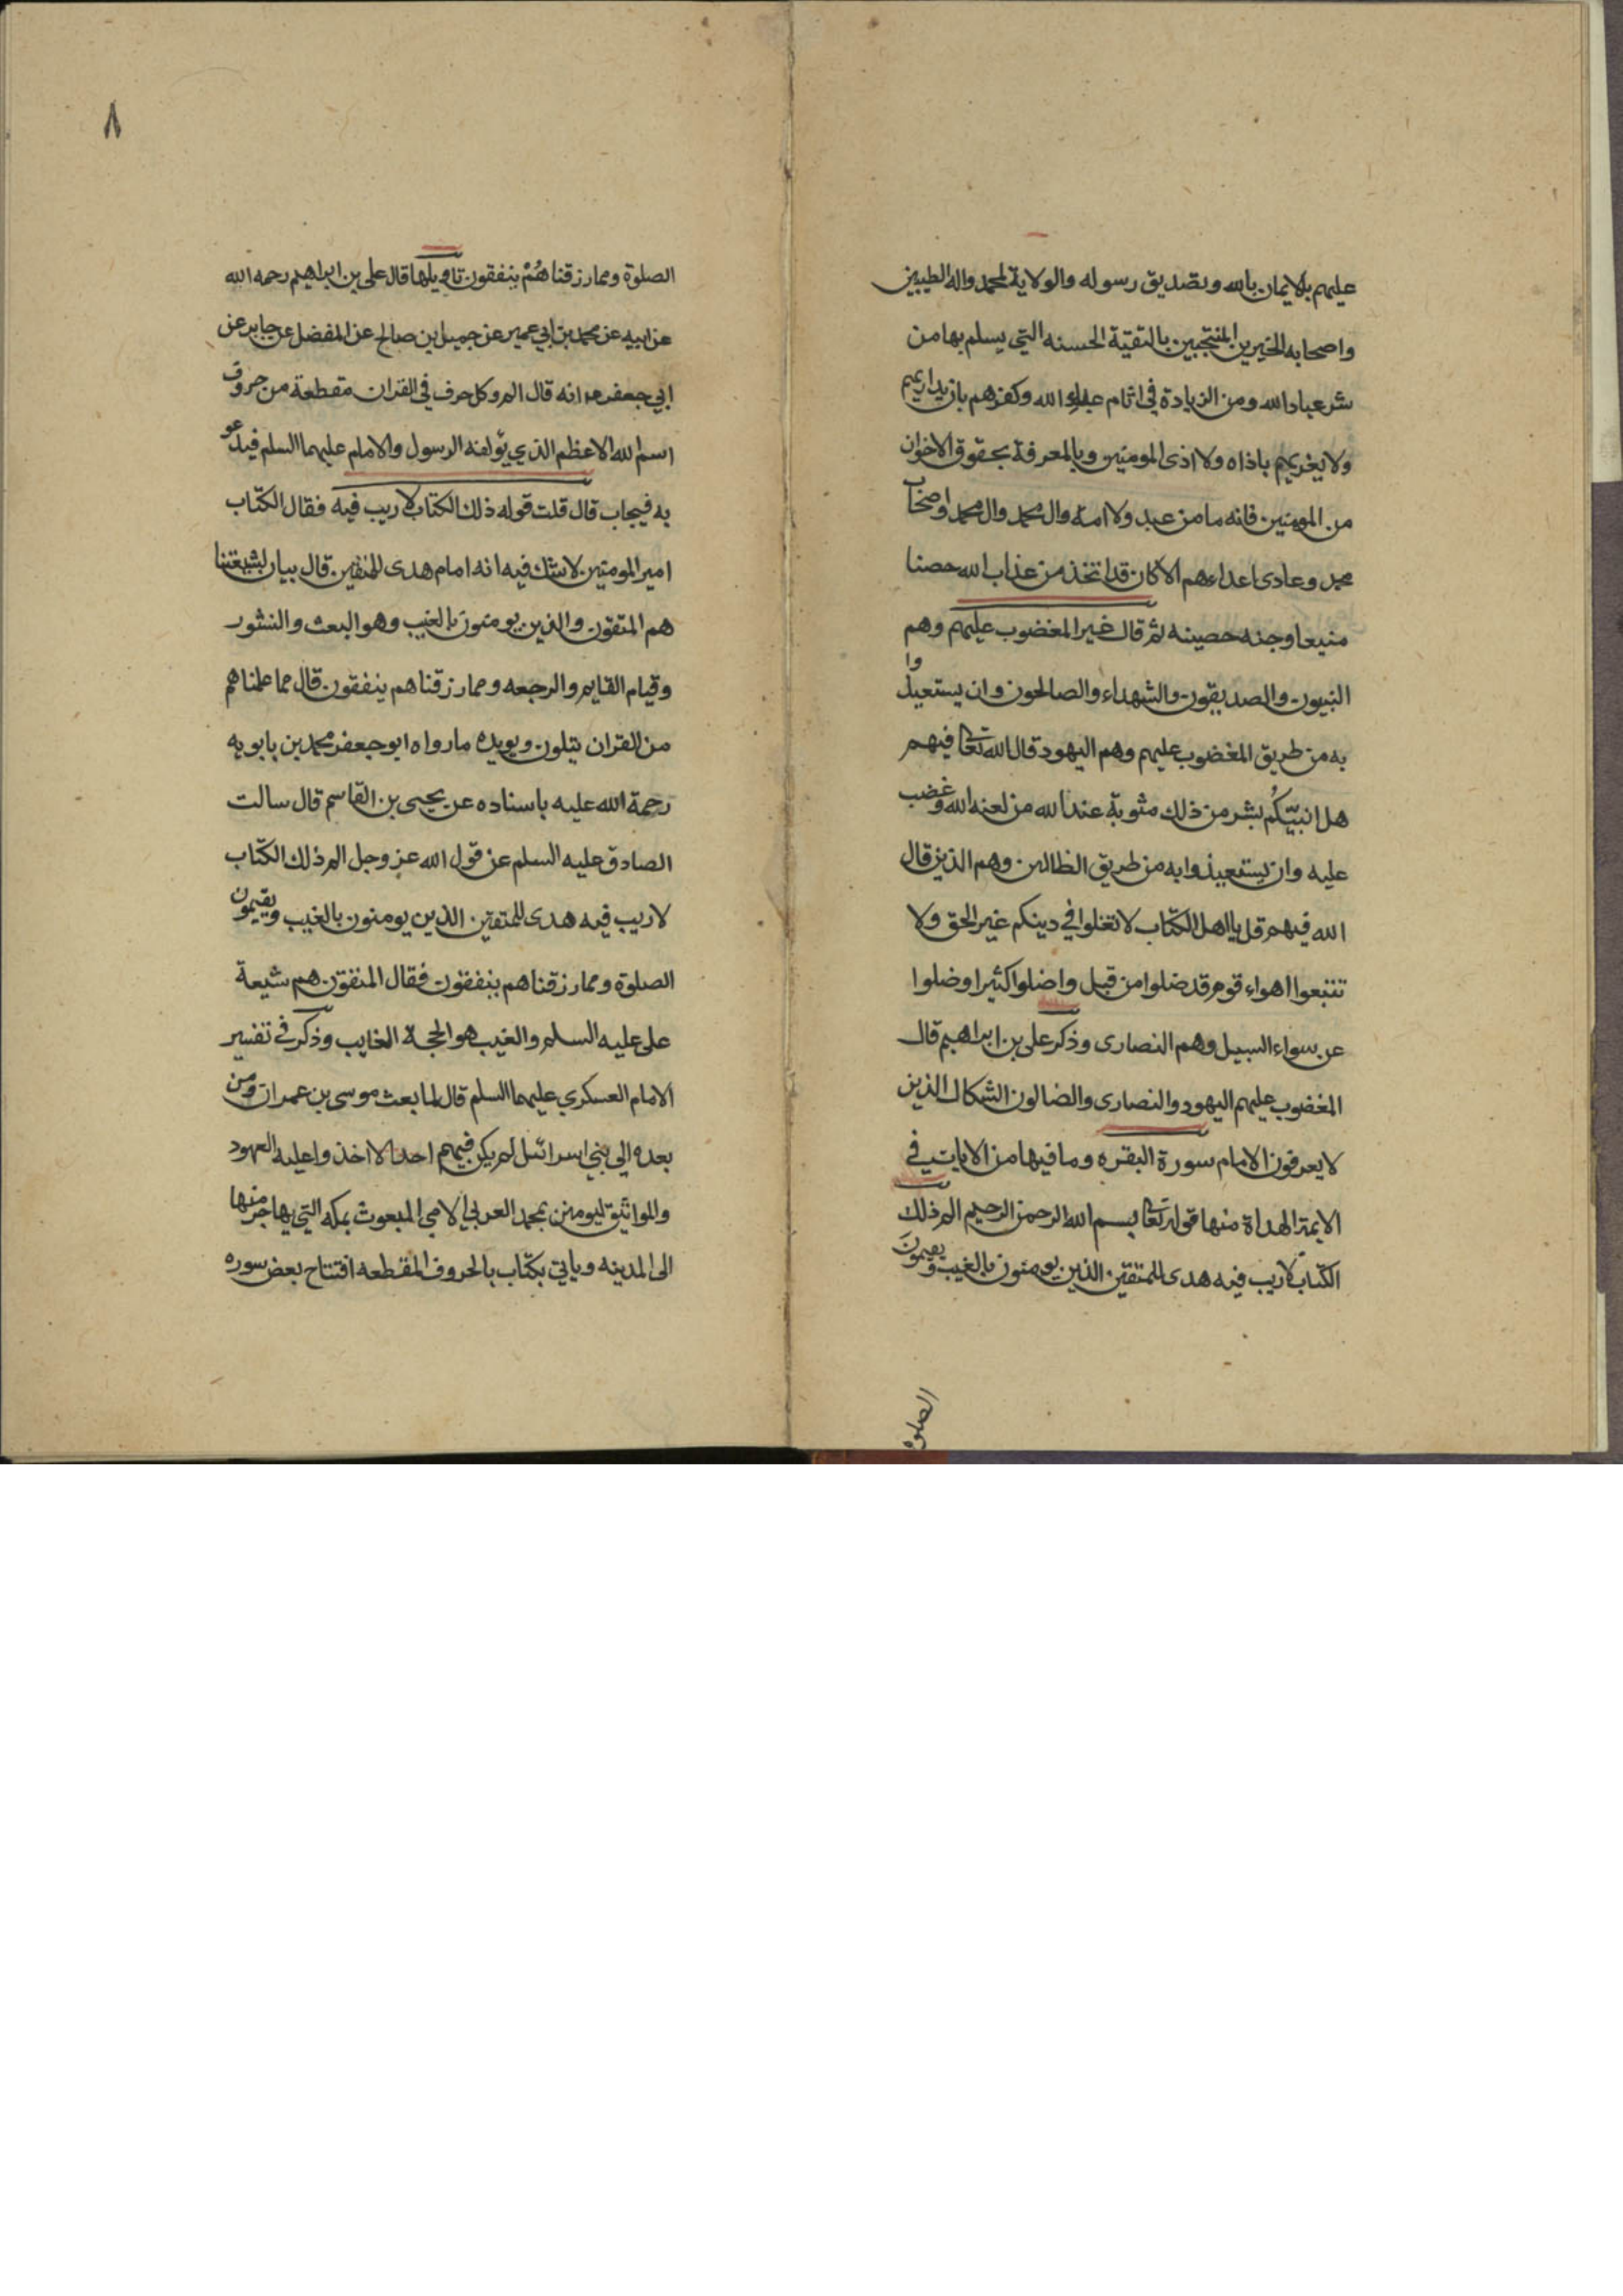 عليهم بالايمان بالله وبتصديق رسوله والولاية لمحمد واله الطيبين
واصحابه الخيرين المنتجبين بالتقية الحسنه التي يسلم بها من
شر عباد الله ومن الزيادة في اثام عباد الله وكفرهم بان يداريهم
ولا يغريهم باذاه ولا اذى المومنين وبالمعرفة بحقوق الاخوان
من المومنين فانه ما من عبد ولا امة وال محمد وال محمد واصحاب
محمد وعادى اعداءهم الا كان قد اتخذ من عذاب الله حصنا
منيعا وجنه حصينه ثم قال غير المغضوب عليهم وهم
النبيون والصديقون والشهداء والصالحون وان يستعيذوا
به من طريق المغضوب عليهم وهم اليهود قال الله تعالى فيهم
هل انبيّكُم بشر من ذلك مثوبة عند الله من لعنه الله وغضب
عليه وان يستعيذوا به من طريق الظالين وهم الذين قال
الله فيهم قل يا اهل الكتاب لا تغلوا في دينكم غير الحق ولا
تتبعوا اهواء قوم قد ضلوا من قبل واضلوا كثيرا وضلوا
عن سواء السبيل وهم النصارى وذكر على بن ابراهيم قال
المغضوب عليهم اليهود والنصارى والضالون الشكاك الذين
لا يعرفون الامام سورة البقره وما فيها من الايات في
الايمة الهداة منها قوله تعالى بسم الله الرحمن الرحيم الم ذلك
الكتاب لا ريب فيه هدى للمتقين الذين يومنون بالغيب ويقيمون
الصلوة
٨
الصلوة ومما رزقناهُمْ ينفقون تاويلها قال على بن ابراهيم رحمه الله
عن ابيه عن محمد بن ابي عمير عن جميل بن صالح عن المفضل عن جابر عن
ابي جعفر انه قال الم وكل حرف في القران مقطعة من حروف
اسم الله الاعظم الذي يؤلفه الرسول والامام عليهما السلم فيدعو
به فيجاب قال قلت قوله ذلك الكتاب لا ريب فيه فقال الكتاب
امير المومنين لا شك فيه انه امام هدى للمتقين قال بيان لشيعتنا
هم المتقون والذين يومنون بالغيب وهو البعث والنشور
وقيام القايم والرجعه ومما رزقناهم ينفقون قال مما علمناهم
من القران يتلون ويويده ما رواه ابو جعفر محمد بن بابويه
رحمة الله عليه باسناده عن يحيى بن القاسم قال سالت
الصادق عليه السلم عن قول الله عز وجل الم ذلك الكتاب
لا ريب فيه هدى للمتقين الذين يومنون بالغيب ويقيمون
الصلوة ومما رزقناهم ينفقون فقال المتقون هم شيعة
على عليه السلم والغيب هو الحجة الغايب وذكر في تفسير
الامام العسكري عليهما السلم قال لما بعث موسى بن عمران ومن
بعده الى بني اسرائيل لم يكن فيهم احد الا اخذوا عليه العهود
والمواثيق ليومنن بمحمد العربي الامي المبعوث بمكه التي يهاجر منها
الى المدينه وياتي بكتاب بالحروف المقطعه افتتاح بعض سوره